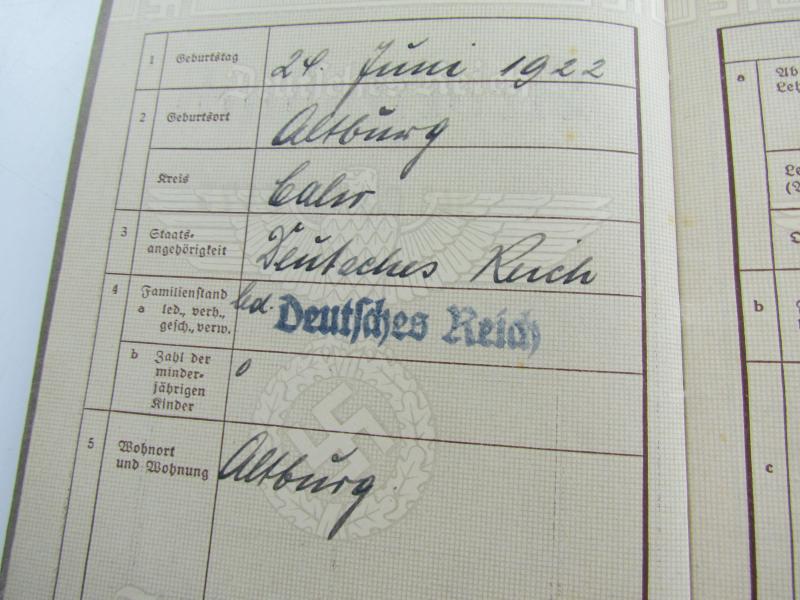 1 Geburtstag 24. Juni 1922
2 Geburtsort Altburg
Kreis Calw
3 Staats-
angehörigkeit Deutsches Reich
4 Familienstand led.
a led., verh.,
gesch., verw.
Deutsches Reich
b Zahl der 0
minder-
jährigen
Kinder
5 Wohnort
und Wohnung Altburg.
a Ab
Leh
Le
b
c